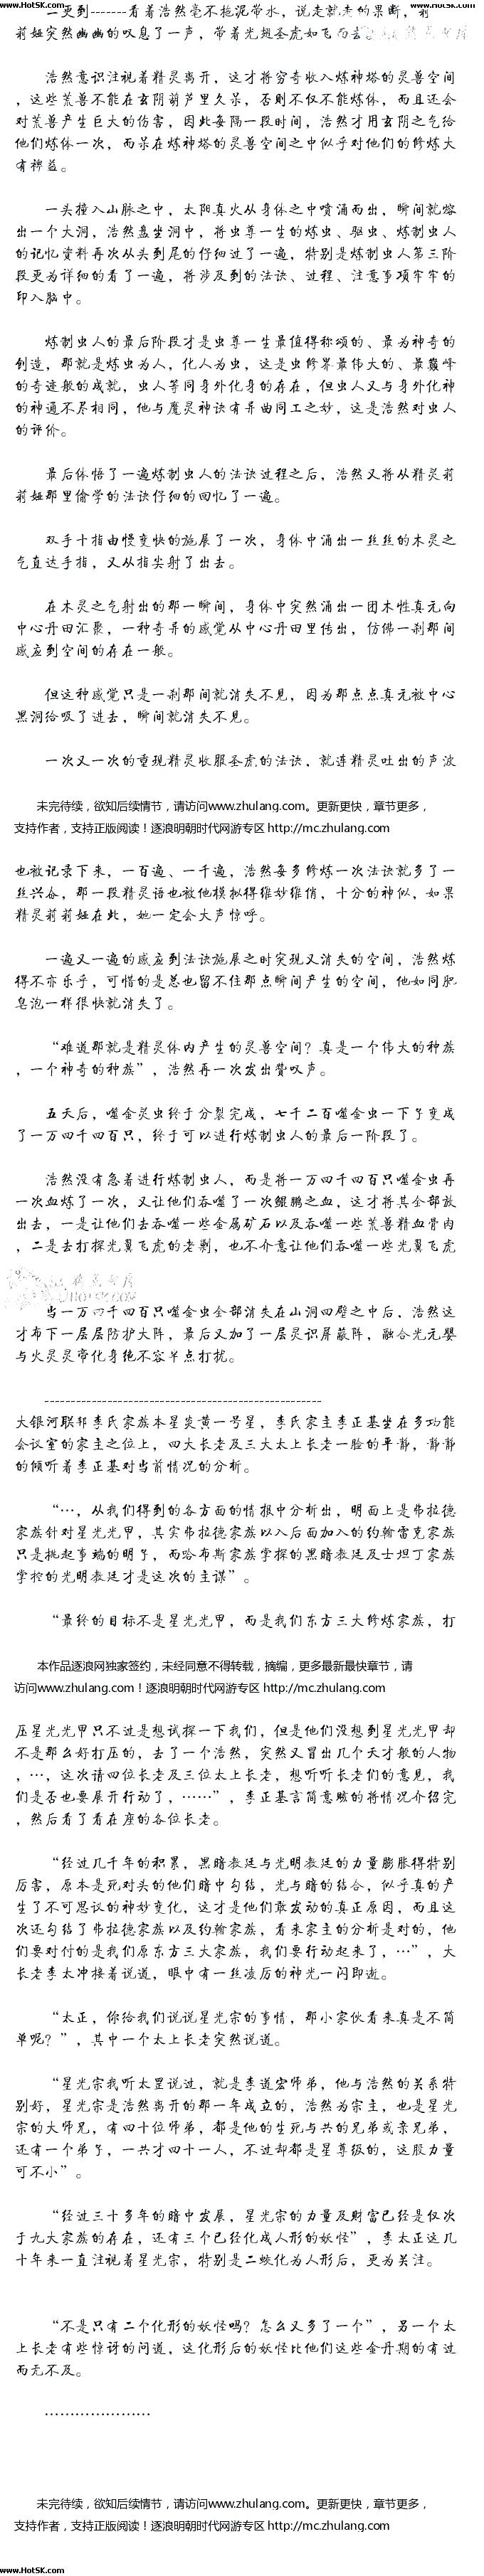 www.HotSK.com www.HotSK.com
一更到-------看着浩然毫不拖泥带水，说走就走的果断，莉
莉娅突然幽幽的叹息了一声，带着光翅圣虎如飞而去
浩然意识注视着精灵离开，这才将穷奇收入炼神塔的灵兽空间
，这些荒兽不能在玄阴葫芦里久呆，否则不仅不能炼体，而且还会
对荒兽产生巨大的伤害，因此每隔一段时间，浩然才用玄阴之气给
他们炼体一次，而呆在炼神塔的灵兽空间之中似乎对他们的修炼大
有裨益。
一头撞入山脉之中，太阳真火从身体之中喷涌而出，瞬间就熔
出一个大洞，浩然盘坐洞中，将虫尊一生的炼虫、驱虫、炼制虫人
的记忆资料再次从头到尾的仔细过了一遍，特别是炼制虫人第三阶
段更为详细的看了一遍，将涉及到的法诀、过程、注意事项牢牢的
印入脑中。
炼制虫人的最后阶段才是虫尊一生最值得称颂的、最为神奇的
创造，那就是炼虫为人，化人为虫，这是虫修界最伟大的、最巅峰
的奇迹般的成就，虫人等同身外化身的存在，但虫人又与身外化神
的神通不尽相同，他与魔灵神诀有异曲同工之妙，这是浩然对虫人
的评价。
最后体悟了一遍炼制虫人的法诀过程之后，浩然又将从精灵莉
莉娅那里偷学的法诀仔细的回忆了一遍。
双手十指由慢变快的施展了一次，身体中涌出一丝丝的木灵之
气直达手指，又从指尖射了出去。
在木灵之气射出的那一瞬间，身体中突然涌出一团木性真元向
中心丹田汇聚，一种奇异的感觉从中心丹田里传出，仿佛一刹那间
感应到空间的存在一般。
但这种感觉只是一刹那间就消失不见，因为那点点真元被中心
黑洞给吸了进去，瞬间就消失不见。
一次又一次的重现精灵收服圣虎的法诀，就连精灵吐出的声波
未完待续，欲知后续情节，请访问www.zhulang.com。更新更快，章节更多，
支持作者，支持正版阅读！逐浪明朝时代网游专区 http://mc.zhulang.com
也被记录下来，一百遍、一千遍，浩然每多修炼一次法诀就多了一
丝兴奋，那一段精灵语也被他模拟得维妙维俏，十分的神似，如果
精灵莉莉娅在此，她一定会大声惊呼。
一遍又一遍的感应到法诀施展之时实现又消失的空间，浩然炼
得不亦乐乎，可惜的是总也留不住那点瞬间产生的空间，他如同肥
皂泡一样很快就消失了。
“难道那就是精灵体内产生的灵兽空间？真是一个伟大的种族
，一个神奇的种族”，浩然再一次发出赞叹声。
五天后，噬金灵虫终于分裂完成，七千二百噬金虫一下子变成
了一万四千四百只，终于可以进行炼制虫人的最后一阶段了。
浩然没有急着进行炼制虫人，而是将一万四千四百只噬金虫再
一次血炼了一次，又让他们吞噬了一次鲲鹏之血，这才将其全部放
出去，一是让他们去吞噬一些金属矿石以及吞噬一些荒兽精血骨肉
，二是去打探光翼飞虎的老剿，也不介意让他们吞噬一些光翼飞虎
HOTSK.COM
当一万四千四百只噬金虫全部消失在山洞四壁之中后，浩然这
才布下一层层防护大阵，最后又加了一层灵识屏蔽阵，融合光元婴
与火灵灵帝化身绝不容半点打扰。
-----------------------------------------------------
大银河联邦李氏家族本星炎黄一号星，李氏家主李正基坐在多功能
会议室的家主之位上，四大长老及三大太上长老一脸的平静，静静
的倾听着李正基对当前情况的分析。
“…，从我们得到的各方面的情报中分析出，明面上是弗拉德
家族针对星光光甲，其实弗拉德家族以入后面加入的约翰雷克家族
只是挑起事端的明子，而哈布斯家族掌探的黑暗教廷及士坦丁家族
掌控的光明教廷才是这次的主谋”。
“最终的目标不是星光光甲，而是我们东方三大修炼家族，打
本作品逐浪网独家签约，未经同意不得转载，摘编，更多最新最快章节，请
访问www.zhulang.com！逐浪明朝时代网游专区 http://mc.zhulang.com
压星光光甲只不过是想试探一下我们，但是他们没想到星光光甲却
不是那么好打压的，去了一个浩然，突然又冒出几个天才般的人物
，…，这次请四位长老及三位太上长老，想听听长老们的意见，我
们是否也要展开行动了，……”，李正基言简意赅的将情况介绍完
，然后看了看在座的各位长老。
“经过几千年的积累，黑暗教廷与光明教廷的力量膨胀得特别
厉害，原本是死对头的他们暗中勾结，光与暗的结合，似乎真的产
生了不可思议的神妙变化，这才是他们敢发动的真正原因，而且这
次还勾结了弗拉德家族以及约翰家族，看来家主的分析是对的，他
们要对付的是我们原东方三大家族，我们要行动起来了，…”，大
长老李太冲接着说道，眼中有一丝凌厉的神光一闪即逝。
“太正，你给我们说说星光宗的事情，那小家伙看来真是不简
单呢？”，其中一个太上长老突然说道。
“星光宗我听太罡说过，就是李道宏师弟，他与浩然的关系特
别好，星光宗是浩然离开的那一年成立的，浩然为宗主，也是星光
宗的大师兄，有四十位师弟，都是他的生死与共的兄弟或亲兄弟，
还有一个弟子，一共才四十一人，不过却都是星尊级的，这股力量
可不小”。
“经过三十多年的暗中发展，星光宗的力量及财富已经是仅次
于九大家族的存在，还有三个已经化成人形的妖怪”，李太正这几
十年来一直注视着星光宗，特别是二蛟化为人形后，更为关注。
“不是只有二个化形的妖怪吗？怎么又多了一个”，另一个太
上长老有些惊讶的问道，这化形后的妖怪比他们这些金丹期的有过
而无不及。
…………………
未完待续，欲知后续情节，请访问www.zhulang.com。更新更快，章节更多，
支持作者，支持正版阅读！逐浪明朝时代网游专区 http://mc.zhulang.com
www.HotSK.com www.HotSK.com